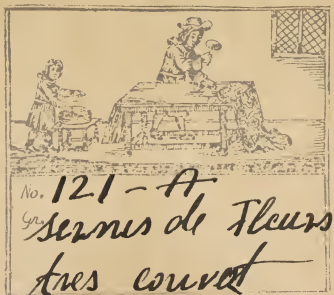 No. 121-A
Gr. semis de Fleurs
tres couvert